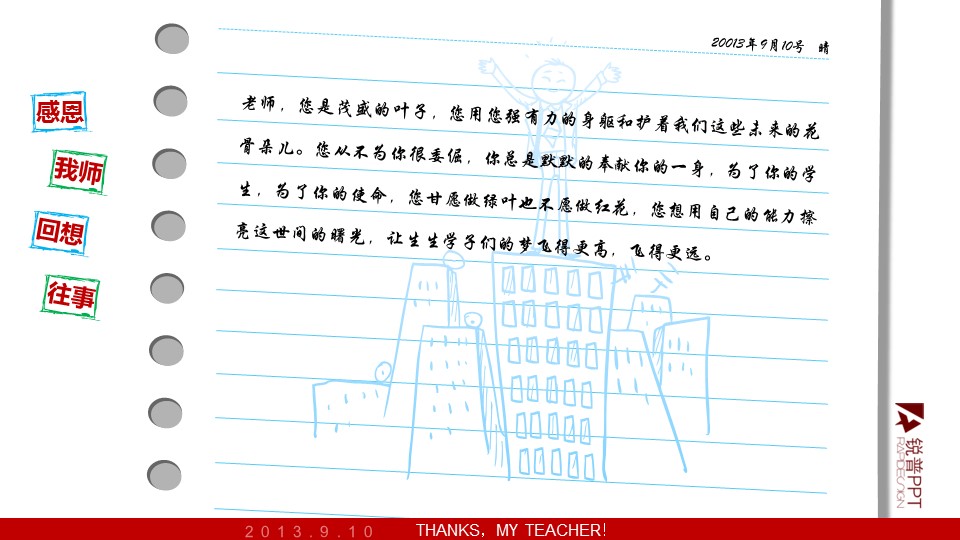 20013年9月10号 晴
感恩
我师
回想
往事
老师，您是茂盛的叶子，您用您强有力的身躯和护着我们这些未来的花
骨朵儿。您从不为你很委倔，你总是默默的奉献你的一身，为了你的学
生，为了你的使命，您甘愿做绿叶也不愿做红花，您想用自己的能力擦
亮这世间的曙光，让生生学子们的梦飞得更高，飞得更远。
锐普PPT
RAPIDESIGN
2013.9.10
THANKS，MY TEACHER!